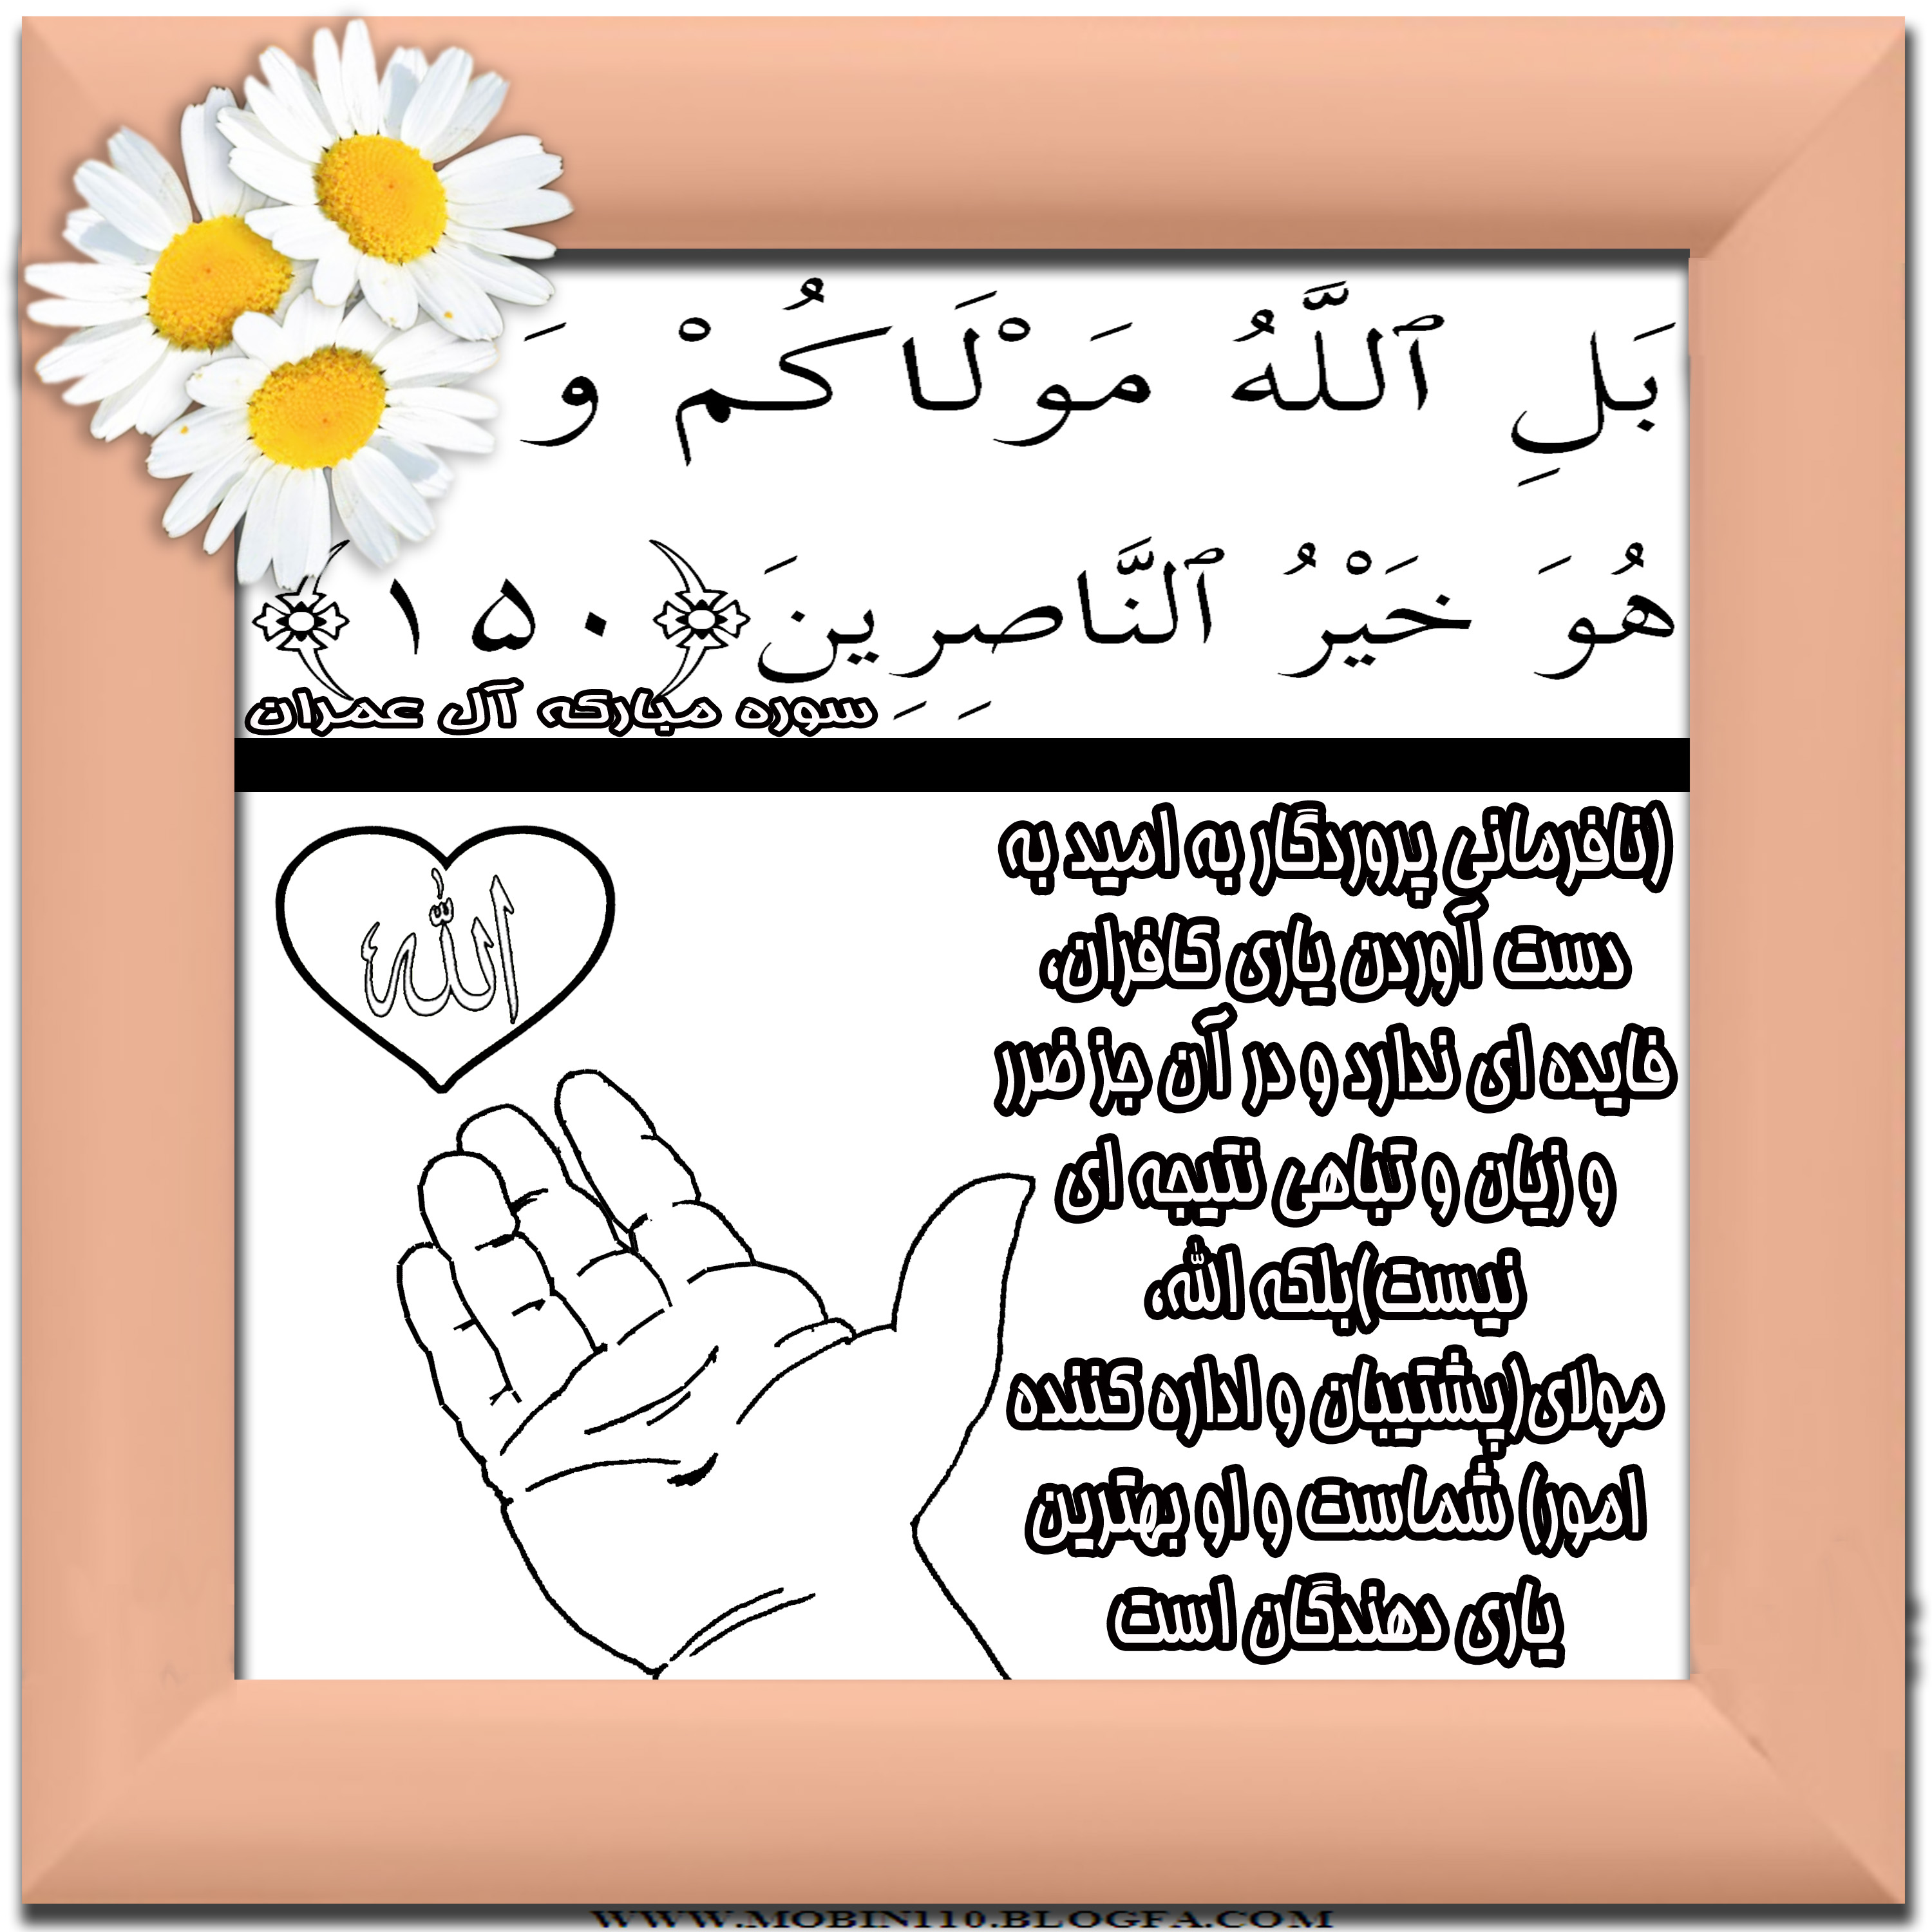 بَلِ ٱللَّهُ مَوْلَاكُمْ وَ
هُوَ خَيْرُ ٱلنَّاصِرِينَ﴿۱۵۰﴾
سوره مبارکه آل عمران
الله
(نافرمانی پروردگار به امید به
دست آوردن یاری کافران،
فایده ای ندارد و در آن جز ضرر
و زیان و تباهی نتیجه ای
نیست)بلکه الله،
مولای(پشتیبان و اداره کننده
امور) شماست و او بهترین
یاری دهندگان است
WWW.MOBIN110.BLOGFA.COM